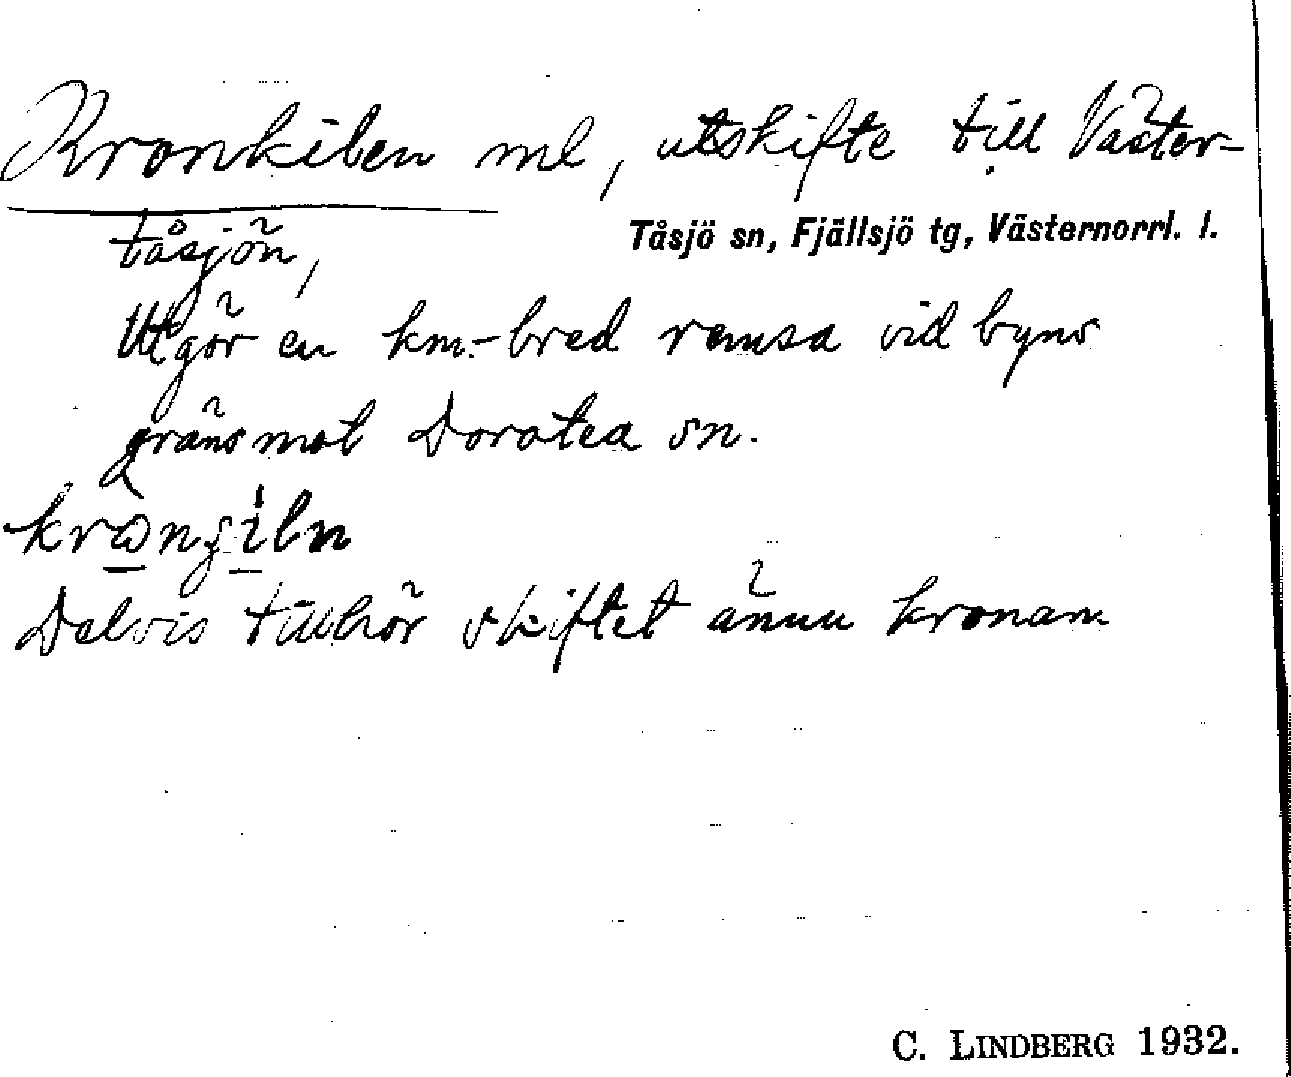 Kronkilen ml, utskifte till Väster-
tåsjön,
Tåsjö sn, Fjällsjö tg, Västernorrl. l.
Utgör en km.-bred remsa vid byns
gräns mot Dorotea sn.
Delvis tillhör skiftet ännu kronan
C. LINDBERG 1932.